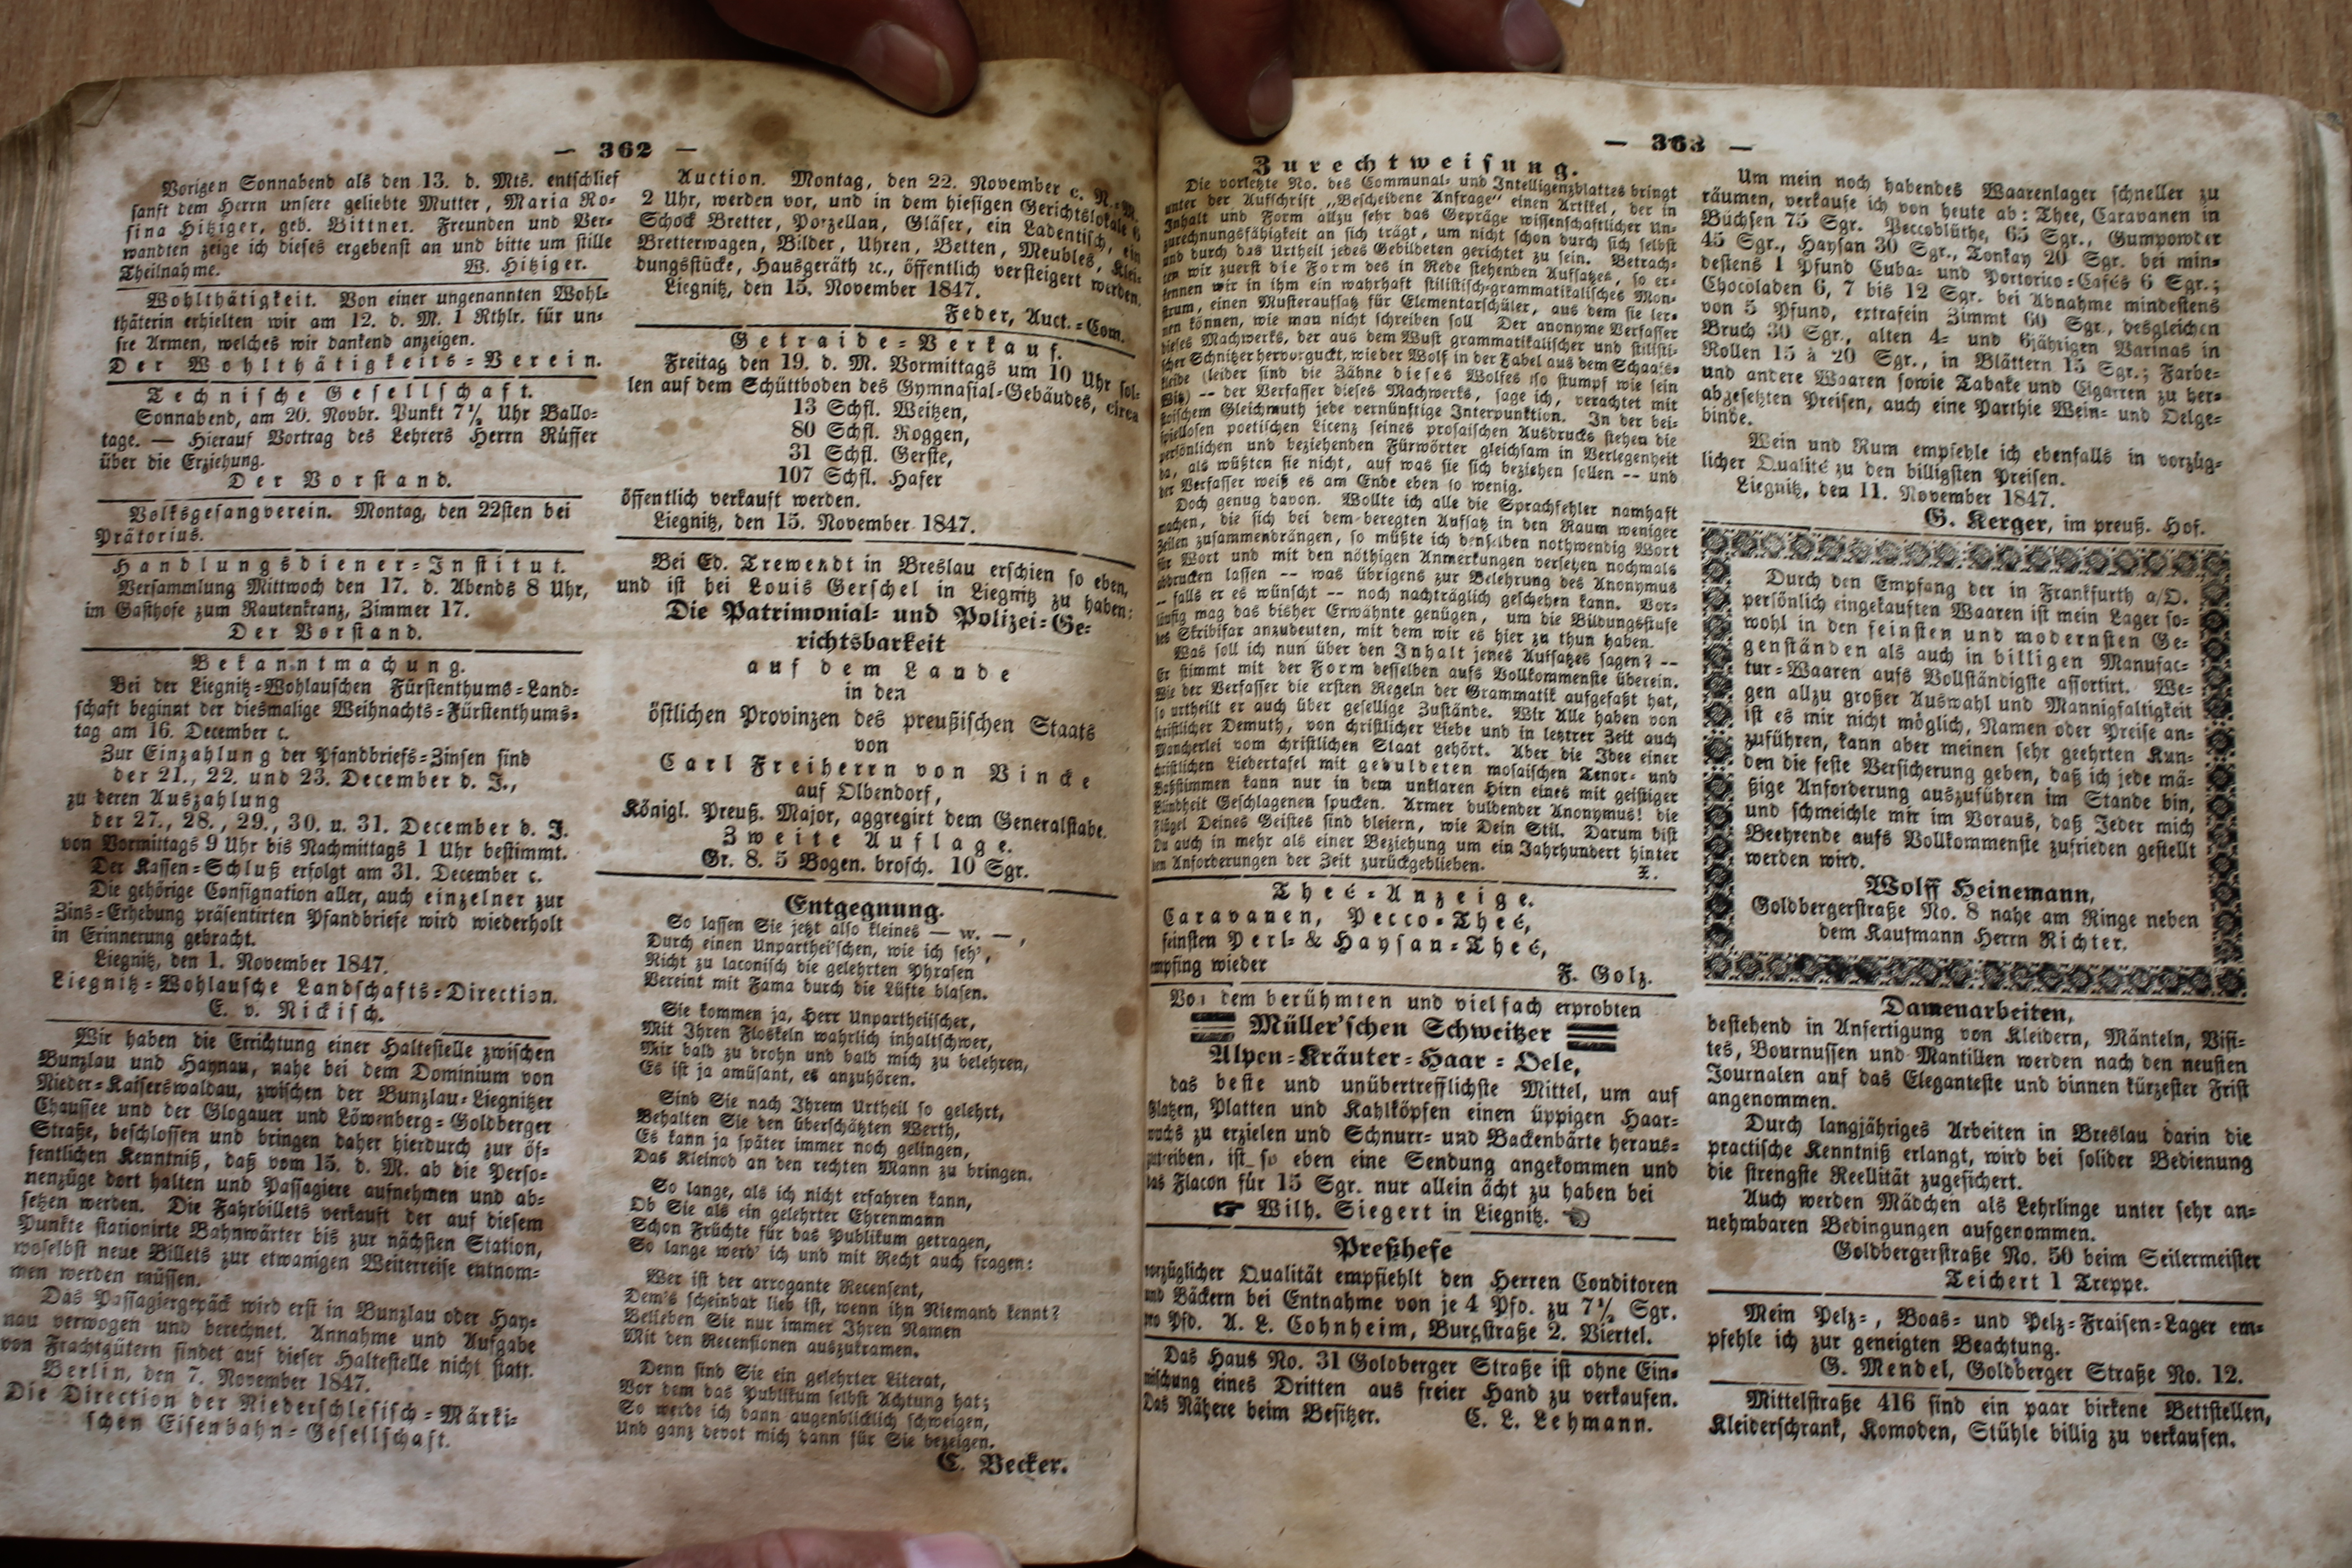 — 362 —
Vorigen Sonnabend als den 13. d. Mts. entschlief
sanft dem Herrn unsere geliebte Mutter, Maria Ro-
sina Hitziger, geb. Bittner. Freunden und Ver-
wandten zeige ich dieses ergebenst an und bitte um stille
Theilnahme. W. Hitziger.
Wohlthätigkeit. Von einer ungenannten Wohl-
thäterin erhielten wir am 12. d. M. 1 Rthlr. für un-
sre Armen, welches wir dankend anzeigen.
Der Wohlthätigkeits-Verein.
Technische Gesellschaft.
Sonnabend, am 20. Novbr. Punkt 7½ Uhr Ballo-
tage. — Hierauf Vortrag des Lehrers Herrn Rüffer
über die Erziehung.
Der Vorstand.
Volksgesangverein. Montag, den 22sten bei
Prätorius.
Handlungsdiener-Institut.
Versammlung Mittwoch den 17. d. Abends 8 Uhr,
im Gasthofe zum Rautenkranz, Zimmer 17.
Der Vorstand.
Bekanntmachung.
Bei der Liegnitz-Wohlauschen Fürstenthums-Land-
schaft beginnt der diesmalige Weihnachts-Fürstenthums-
tag am 16. December c.
Zur Einzahlung der Pfandbriefs-Zinsen sind
der 21., 22. und 23. December d. J.,
zu deren Auszahlung
der 27., 28., 29., 30. u. 31. December d. J.
von Vormittags 9 Uhr bis Nachmittags 1 Uhr bestimmt.
Der Kassen-Schluß erfolgt am 31. December c.
Die gehörige Consignation aller, auch einzelner zur
Zins-Erhebung präsentirten Pfandbriefe wird wiederholt
in Erinnerung gebracht.
Liegnitz, den 1. November 1847.
Liegnitz-Wohlausche Landschafts-Direction.
E. v. Nickisch.
Wir haben die Errichtung einer Haltestelle zwischen
Bunzlau und Haynau, nahe bei dem Dominium von
Nieder-Kaiserswaldau, zwischen der Bunzlau-Liegnitzer
Chaussee und der Glogauer und Löwenberg-Goldberger
Straße, beschlossen und bringen daher hierdurch zur öf-
fentlichen Kenntniß, daß vom 15. d. M. ab die Perso-
nenzüge dort halten und Passagiere aufnehmen und ab-
setzen werden. Die Fahrbillets verkauft der auf diesem
Punkte stationirte Bahnwärter bis zur nächsten Station,
woselbst neue Billets zur etwanigen Weiterreise entnom-
men werden müssen.
Das Passagiergepäck wird erst in Bunzlau oder Hay-
nau verwogen und berechnet. Annahme und Aufgabe
von Frachtgütern findet auf dieser Haltestelle nicht statt.
Berlin, den 7. November 1847.
Die Direction der Niederschlesisch-Märki-
schen Eisenbahn-Gesellschaft.
Auction. Montag, den 22. November c. N.-M.
2 Uhr, werden vor, und in dem hiesigen Gerichtslokale 6
Schock Bretter, Porzellan, Gläser, ein Ladentisch, ein
Bretterwagen, Bilder, Uhren, Betten, Meubles, Klei-
dungsstücke, Hausgeräth ꝛc., öffentlich versteigert werden.
Liegnitz, den 15. November 1847.
Feder, Auct.-Com.
Getraide-Verkauf.
Freitag den 19. d. M. Vormittags um 10 Uhr sol-
len auf dem Schüttboden des Gymnasial-Gebäudes, circa
13 Schfl. Weitzen,
80 Schfl. Roggen,
31 Schfl. Gerste,
107 Schfl. Hafer
öffentlich verkauft werden.
Liegnitz, den 15. November 1847.
Bei Ed. Trewendt in Breslau erschien so eben,
und ist bei Louis Gerschel in Liegnitz zu haben:
Die Patrimonial- und Polizei-Ge-
richtsbarkeit
auf dem Lande
in den
östlichen Provinzen des preußischen Staats
von
Carl Freiherrn von Vincke
auf Olbendorf,
Königl. Preuß. Major, aggregirt dem Generalstabe.
Zweite Auflage.
Gr. 8. 5 Bogen. brosch. 10 Sgr.
Entgegnung.
So lassen Sie jetzt also kleines — w. —,
Durch einen Unparthei'schen, wie ich seh',
Nicht zu laconisch die gelehrten Phrasen
Vereint mit Fama durch die Lüfte blasen.
Sie kommen ja, Herr Unpartheiischer,
Mit Ihren Floskeln wahrlich inhaltschwer,
Mir bald zu drohn und bald mich zu belehren,
Es ist ja amüsant, es anzuhören.
Sind Sie nach Ihrem Urtheil so gelehrt,
Behalten Sie den überschätzten Werth,
Es kann ja später immer noch gelingen,
Das Kleinod an den rechten Mann zu bringen.
So lange, als ich nicht erfahren kann,
Ob Sie als ein gelehrter Ehrenmann
Schon Früchte für das Publikum getragen,
So lange werd' ich und mit Recht auch fragen:
Wer ist der arrogante Recensent,
Dem's scheinbar lieb ist, wenn ihn Niemand kennt?
Belieben Sie nur immer Ihren Namen
Mit den Recensionen auszukramen.
Denn sind Sie ein gelehrter Literat,
Vor dem das Publikum selbst Achtung hat;
So werde ich dann augenblicklich schweigen,
Und ganz devot mich dann für Sie bezeigen.
C. Becker.
— 363 —
Zurechtweisung.
Die vorletzte No. des Communal- und Intelligenzblattes bringt
unter der Aufschrift „Bescheidene Anfrage“ einen Artikel, der in
Inhalt und Form allzu sehr das Gepräge wissenschaftlicher Un-
zurechnungsfähigkeit an sich trägt, um nicht schon durch sich selbst
und durch das Urtheil jedes Gebildeten gerichtet zu sein. Betrach-
ten wir zuerst die Form des in Rede stehenden Aufsatzes, so er-
kennen wir in ihm ein wahrhaft stilistisch-grammatikalisches Mon-
strum, einen Musteraufsatz für Elementarschüler, aus dem sie ler-
nen können, wie man nicht schreiben soll Der anonyme Verfasser
dieses Machwerks, der aus dem Wust grammatikalischer und stilisti-
scher Schnitzer hervorguckt, wie der Wolf in der Fabel aus dem Schaafs-
kleide (leider sind die Zähne dieses Wolfes so stumpf wie sein
Witz) -- der Verfasser dieses Machwerks, sage ich, verachtet mit
stoischem Gleichmuth jede vernünftige Interpunktion. In der bei-
spiellosen poetischen Licenz seines prosaischen Ausdrucks stehen die
persönlichen und beziehenden Fürwörter gleichsam in Verlegenheit
da, als wüßten sie nicht, auf was sie sich beziehen sollen -- und
der Verfasser weiß es am Ende eben so wenig.
Doch genug davon. Wollte ich alle die Sprachfehler namhaft
machen, die sich bei dem beregten Aufsatz in den Raum weniger
Zeilen zusammendrängen, so müßte ich denselben nothwendig Wort
für Wort und mit den nöthigen Anmerkungen versetzen nochmals
abdrucken lassen -- was übrigens zur Belehrung des Anonymus
-- falls er es wünscht -- noch nachträglich geschehen kann. Vor-
läufig mag das bisher Erwähnte genügen, um die Bildungsstufe
des Skribifax anzudeuten, mit dem wir es hier zu thun haben.
Was soll ich nun über den Inhalt jenes Aufsatzes sagen? --
Er stimmt mit der Form desselben aufs Vollkommenste überein.
Wie der Verfasser die ersten Regeln der Grammatik aufgefaßt hat,
so urtheilt er auch über gesellige Zustände. Wir Alle haben von
christlicher Demuth, von christlicher Liebe und in letztrer Zeit auch
Mancherlei vom christlichen Staat gehört. Aber die Idee einer
christlichen Liedertafel mit geduldeten mosaischen Tenor- und
Baßstimmen kann nur in dem unklaren Hirn eines mit geistiger
Blindheit Geschlagenen spucken. Armer duldender Anonymus! die
Flügel Deines Geistes sind bleiern, wie Dein Stil. Darum bist
Du auch in mehr als einer Beziehung um ein Jahrhundert hinter
den Anforderungen der Zeit zurückgeblieben. X.
Theé-Anzeige.
Caravanen, Pecco-Theé,
feinsten Perl- & Haysan-Theé,
empfing wieder F. Golz.
Von dem berühmten und vielfach erprobten
Müller'schen Schweitzer
Alpen-Kräuter-Haar-Oele,
das beste und unübertrefflichste Mittel, um auf
Glatzen, Platten und Kahlköpfen einen üppigen Haar-
wuchs zu erzielen und Schnurr- und Backenbärte heraus-
zutreiben, ist so eben eine Sendung angekommen und
das Flacon für 15 Sgr. nur allein ächt zu haben bei
Wilh. Siegert in Liegnitz.
Preßhefe
vorzüglicher Qualität empfiehlt den Herren Conditoren
und Bäckern bei Entnahme von je 4 Pfd. zu 7½ Sgr.
pro Pfd. A. L. Cohnheim, Burgstraße 2. Viertel.
Das Haus No. 31 Goldberger Straße ist ohne Ein-
mischung eines Dritten aus freier Hand zu verkaufen.
Das Nähere beim Besitzer. C. L. Lehmann.
Um mein noch habendes Waarenlager schneller zu
räumen, verkaufe ich von heute ab: Thee, Caravanen in
Büchsen 75 Sgr. Peccoblüthe, 65 Sgr., Gumpowder
45 Sgr., Haysan 30 Sgr., Tonkay 20 Sgr. bei min-
destens 1 Pfund Cuba- und Portorico-Cafés 6 Sgr.;
Chocoladen 6, 7 bis 12 Sgr. bei Abnahme mindestens
von 5 Pfund, extrafein Zimmt 60 Sgr., desgleichen
Bruch 30 Sgr., alten 4- und 6jährigen Varinas in
Rollen 15 à 20 Sgr., in Blättern 15 Sgr.; Farbe-
und andere Waaren sowie Tabake und Cigarren zu her-
abgesetzten Preisen, auch eine Parthie Wein- und Oelge-
binde.
Wein und Rum empfehle ich ebenfalls in vorzüg-
licher Qualité zu den billigsten Preisen.
Liegnitz, den 11. November 1847.
G. Kerger, im preuß. Hof.
Durch den Empfang der in Frankfurth a/O.
persönlich eingekauften Waaren ist mein Lager so-
wohl in den feinsten und modernsten Ge-
genständen als auch in billigen Manufac-
tur-Waaren aufs Vollständigste assortirt. We-
gen allzu großer Auswahl und Mannigfaltigkeit
ist es mir nicht möglich, Namen oder Preise an-
zuführen, kann aber meinen sehr geehrten Kun-
den die feste Versicherung geben, daß ich jede mä-
ßige Anforderung auszuführen im Stande bin,
und schmeichle mir im Voraus, daß Jeder mich
Beehrende aufs Vollkommenste zufrieden gestellt
werden wird.
Wolff Heinemann,
Goldbergerstraße No. 8 nahe am Ringe neben
dem Kaufmann Herrn Richter.
Damenarbeiten,
bestehend in Anfertigung von Kleidern, Mänteln, Visi-
tes, Bournussen und Mantillen werden nach den neusten
Journalen auf das Eleganteste und binnen kürzester Frist
angenommen.
Durch langjähriges Arbeiten in Breslau darin die
practische Kenntniß erlangt, wird bei solider Bedienung
die strengste Reellität zugesichert.
Auch werden Mädchen als Lehrlinge unter sehr an-
nehmbaren Bedingungen aufgenommen.
Goldbergerstraße No. 50 beim Seilermeister
Teichert 1 Treppe.
Mein Pelz-, Boas- und Pelz-Fraisen-Lager em-
pfehle ich zur geneigten Beachtung.
G. Mendel, Goldberger Straße No. 12.
Mittelstraße 416 sind ein paar birkene Bettstellen,
Kleiderschrank, Komoden, Stühle billig zu verkaufen.